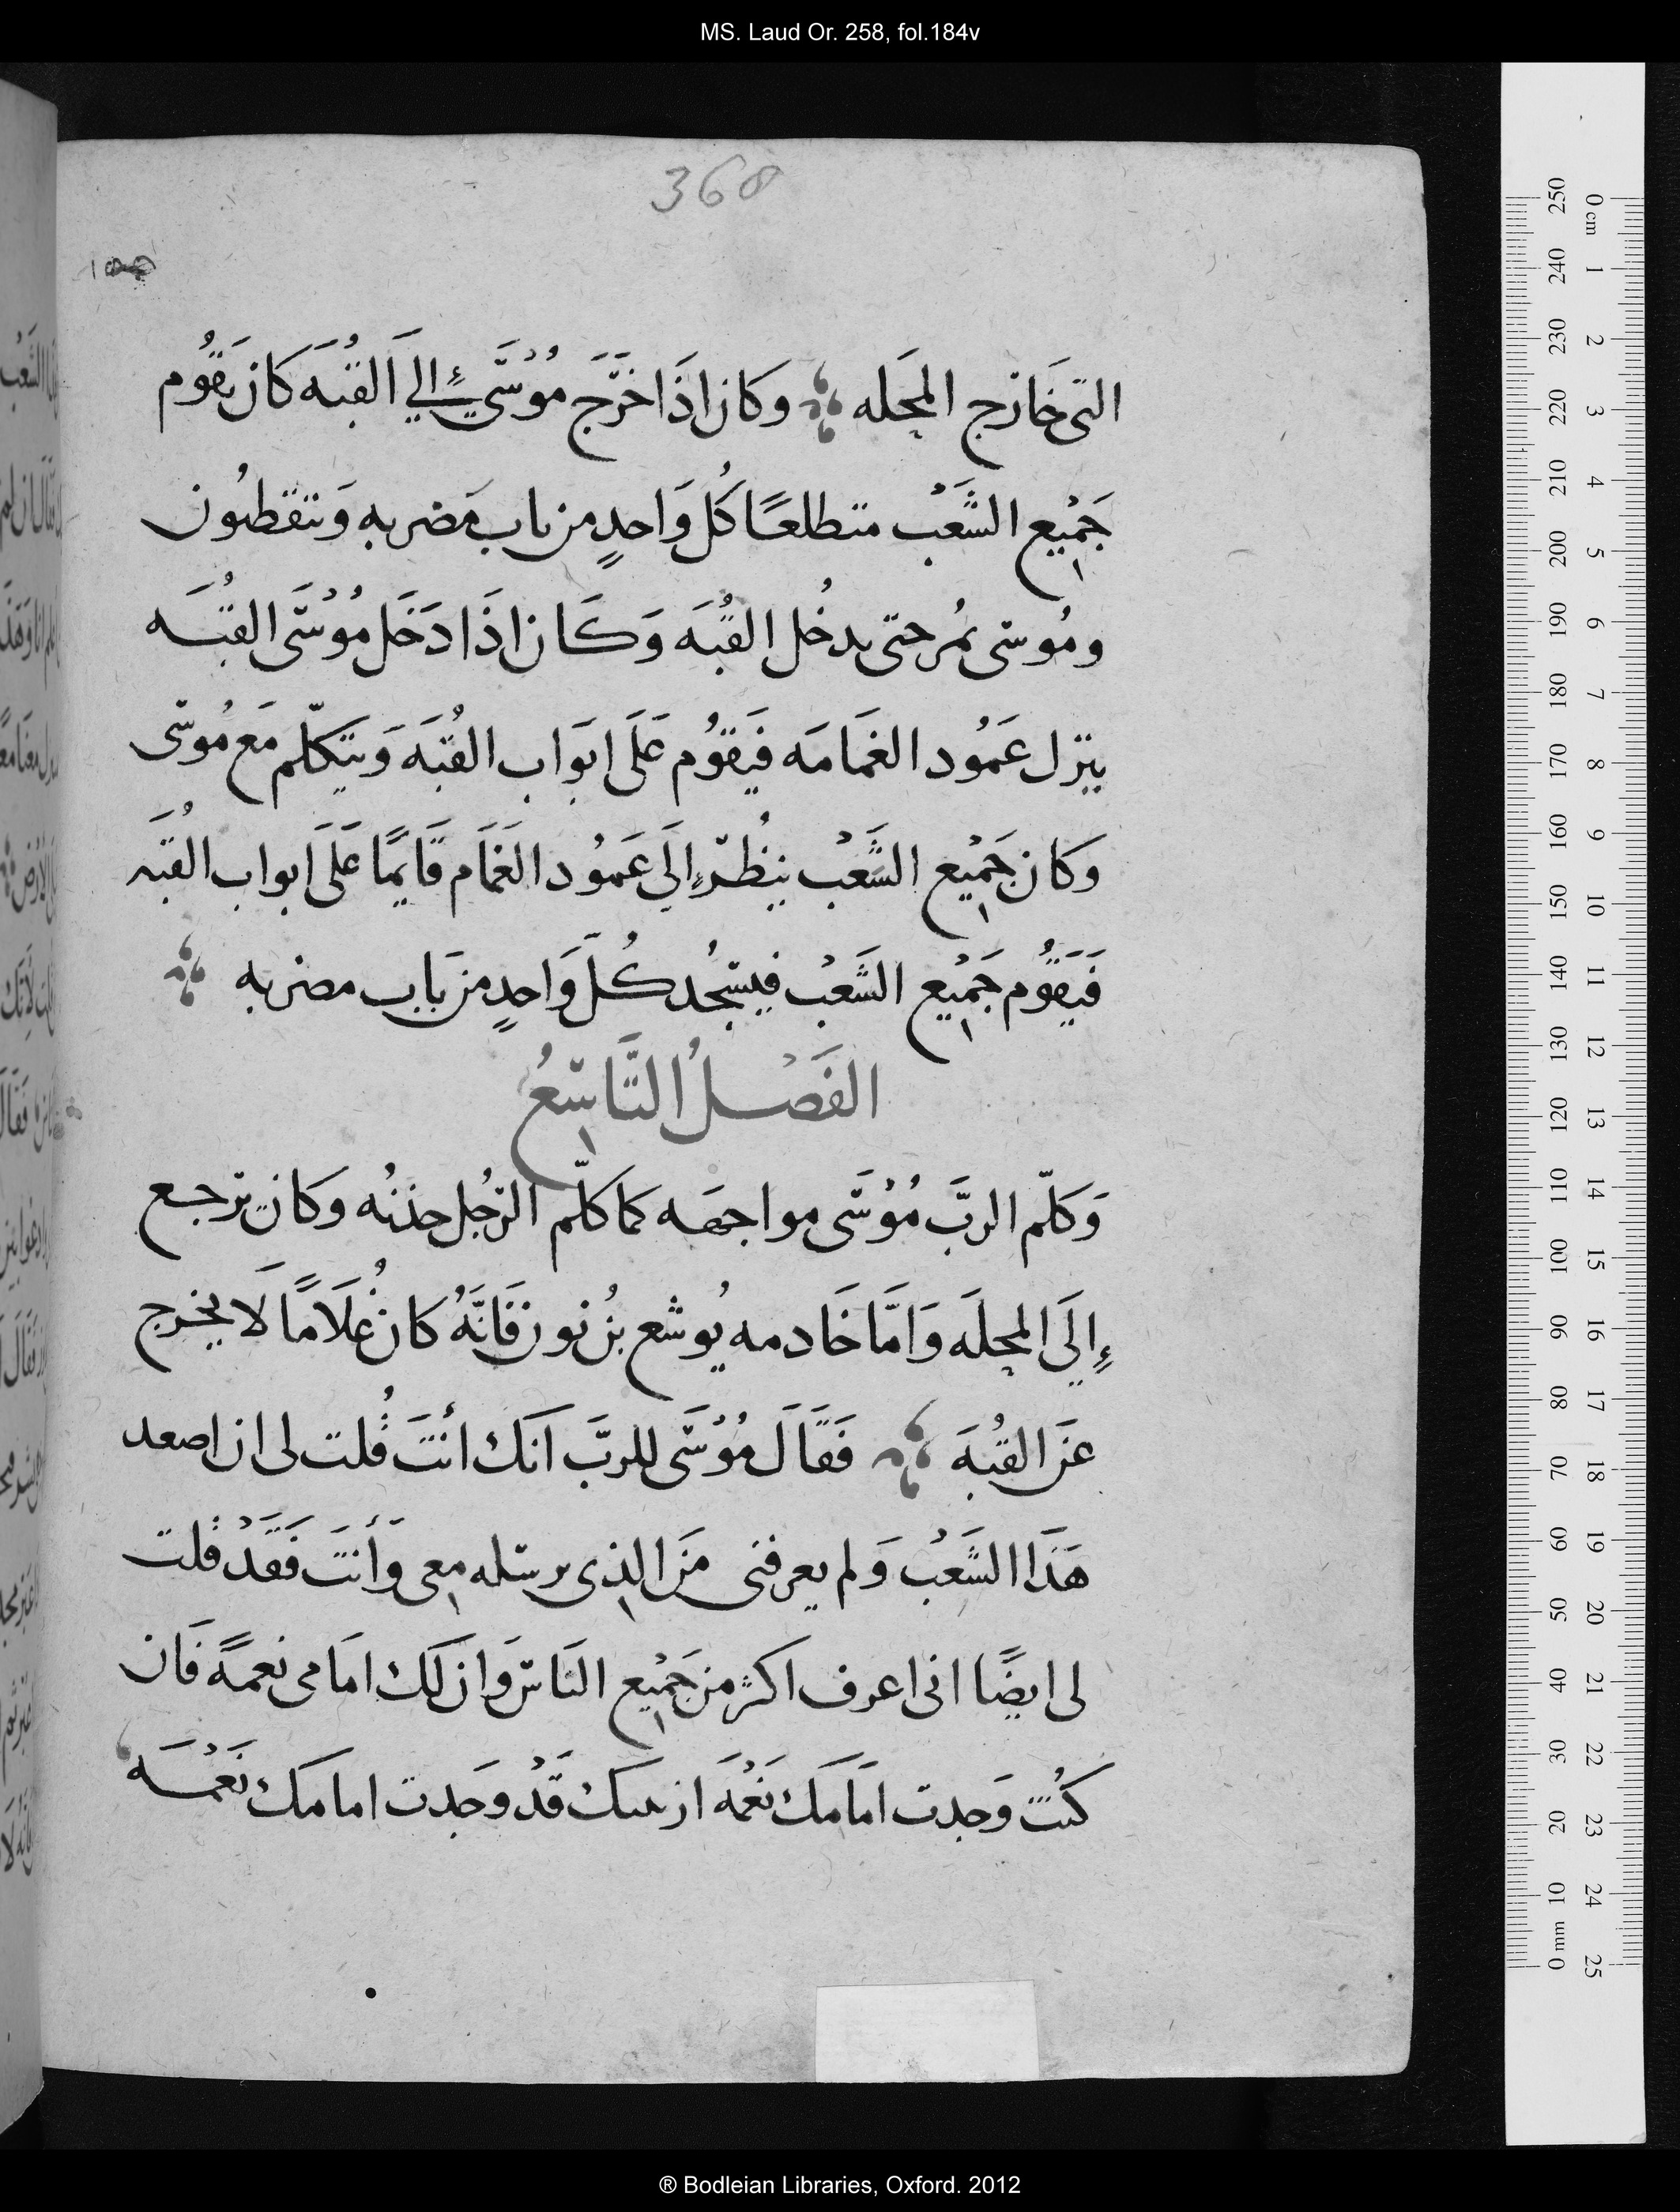 MS. Laud Or. 258, fol.184v
368
التى خَارج المَحَله وكان اذَا خرَج مُوْسَى إلي القُبَه كان يقُوم
جَميْع الشَّعْب متطلعًا كُل وَاحدٍ من باب مَضربه وَ
ومُوسى يمُر حتى يدخُل القُبَه وَكَان اذَا دَخَل مُوْسَى القبُه
ينزل عَمُود الغَمَامَه فَيقوُم عَلَى ابَوَاب القُبَه وَيَتكلّم مَع مُوسى
وكان جَميْع الشَّعْب ينظُر إلَي عَمُود الغَمَام قَايمًا عَلَى ابواب القُبَه
فَيَقوُم جَميْع الشَعْب فيسَجُد كُلَ وَاحدٍ من بَاب مضربه
الفَصْلُ التَّاسعُ
وَكلّم الربَّ مُوْسَى مواجهَه كما كلّم الرجُل خذنُه وكان يرجع
إلَي المحلَه وَامَّا خَادمه يُوشع بنُ نون فَانَّهُ كان غُلَامًا لَا يخرج
عَن القُبَه فَقَالَ مُوْسَى للربَّ اَنَك أنتَ قُلت لى ان اصعد
هَذَا الشَعْب وَلم يعرفنى مَن الذى يرسله معى وَأنتَ فَقَدْ قُلت
لى ايضًا انى اعرف اكثر من جَميْع النَاس وَان لَك امَامى نعمَةً فَان
كنُت وَجدت امَامَك نَعْمَه قَدْ وجَدت امامَك نَعْمَه
0 mm 10 20 30 40 50 60 70 80 90 100 110 120 130 140 150 160 170 180 190 200 210 220 230 240 250
0 cm 1 2 3 4 5 6 7 8 9 10 11 12 13 14 15 16 17 18 19 20 21 22 23 24 25
® Bodleian Libraries, Oxford. 2012